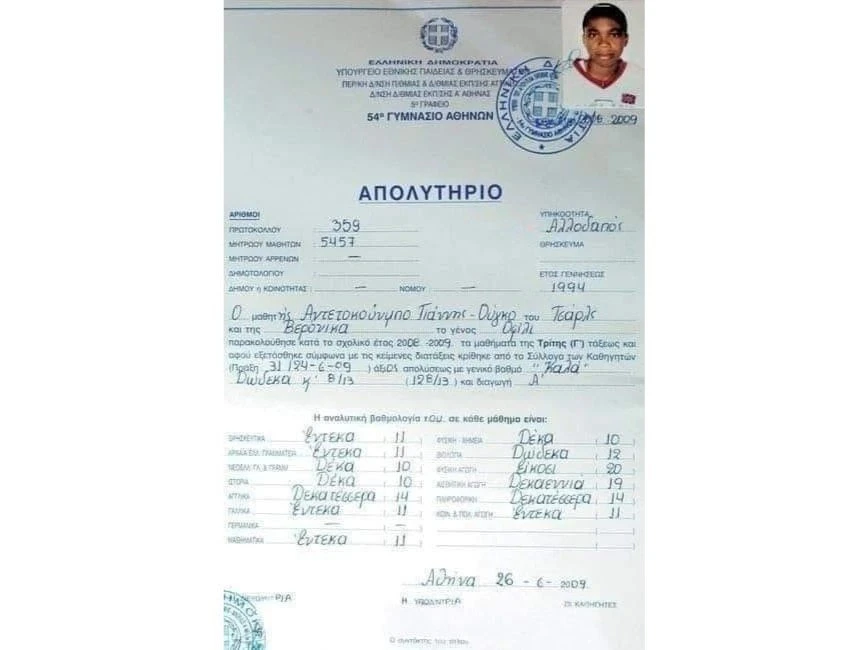 ΕΛΛΗΝΙΚΗ ΔΗΜΟΚΡΑΤΙΑ
ΥΠΟΥΡΓΕΙΟ ΕΘΝΙΚΗΣ ΠΑΙΔΕΙΑΣ & ΘΡΗΣΚΕΥΜΑΤΩΝ
ΠΕΡ/ΚΗ Δ/ΝΣΗ Π/ΘΜΙΑΣ & Δ/ΘΜΙΑΣ ΕΚΠ/ΣΗΣ
Δ/ΝΣΗ Δ/ΘΜΙΑΣ ΕΚΠ/ΣΗΣ Α΄ ΑΘΗΝΑΣ
5ο ΓΡΑΦΕΙΟ
54ο ΓΥΜΝΑΣΙΟ ΑΘΗΝΩΝ
2009
ΑΠΟΛΥΤΗΡΙΟ
ΑΡΙΘΜΟΙ
ΠΡΩΤΟΚΟΛΛΟΥ 359
ΜΗΤΡΩΟΥ ΜΑΘΗΤΩΝ : 5457
ΜΗΤΡΩΟΥ ΑΡΡΕΝΩΝ : —
ΔΗΜΟΤΟΛΟΓΙΟΥ :
ΔΗΜΟΥ ή ΚΟΙΝΟΤΗΤΑΣ : — ΝΟΜΟΥ : —
ΥΠΗΚΟΟΤΗΤΑ
Αλλοδαπός
ΘΡΗΣΚΕΥΜΑ
ΕΤΟΣ ΓΕΝΝΗΣΕΩΣ
1994
Ο μαθητής Αντετοκούνμπο Γιάννης-Ούγκο του Τσάρλς
και της Βερόνικα το γένος
παρακολούθησε κατά το σχολικό έτος 2008 -2009 τα μαθήματα της Τρίτης (Γ΄) τάξεως και
αφού εξετάσθηκε σύμφωνα με τις κείμενες διατάξεις κρίθηκε από το Σύλλογο των Καθηγητών
(Πράξη 31/24-6-09) άξιος απολύσεως με γενικό βαθμό "Καλά"
Δώδεκα κ' 8/13 (12 8/13) και διαγωγή Α'
Η αναλυτική βαθμολογία του σε κάθε μάθημα είναι:
ΘΡΗΣΚΕΥΤΙΚΑ Έντεκα ( 11 )
ΑΡΧΑΙΑ ΕΛΛ. ΓΡΑΜΜΑΤΕΙΑ Έντεκα ( 11 )
ΝΕΟΕΛΛ. ΓΛ. & ΓΡΑΜΜ. Δέκα ( 10 )
ΙΣΤΟΡΙΑ Δέκα ( 10 )
ΑΓΓΛΙΚΑ Δεκατέσσερα ( 14 )
ΓΑΛΛΙΚΑ Έντεκα ( 11 )
ΓΕΡΜΑΝΙΚΑ — ( — )
ΜΑΘΗΜΑΤΙΚΑ Έντεκα ( 11 )
ΦΥΣΙΚΗ - ΧΗΜΕΙΑ Δέκα ( 10 )
ΒΙΟΛΟΓΙΑ Δώδεκα ( 12 )
ΦΥΣΙΚΗ ΑΓΩΓΗ Είκοσι ( 20 )
ΑΙΣΘΗΤΙΚΗ ΑΓΩΓΗ Δεκαεννιά ( 19 )
ΠΛΗΡΟΦΟΡΙΚΗ Δεκατέσσερα ( 14 )
ΚΟΙΝ. & ΠΟΛ. ΑΓΩΓΗ Έντεκα ( 11 )
Αθήνα 26 - 6 - 2009
Οι ΚΑΘΗΓΗΤΕΣ
Ο συντάκτης του τίτλου